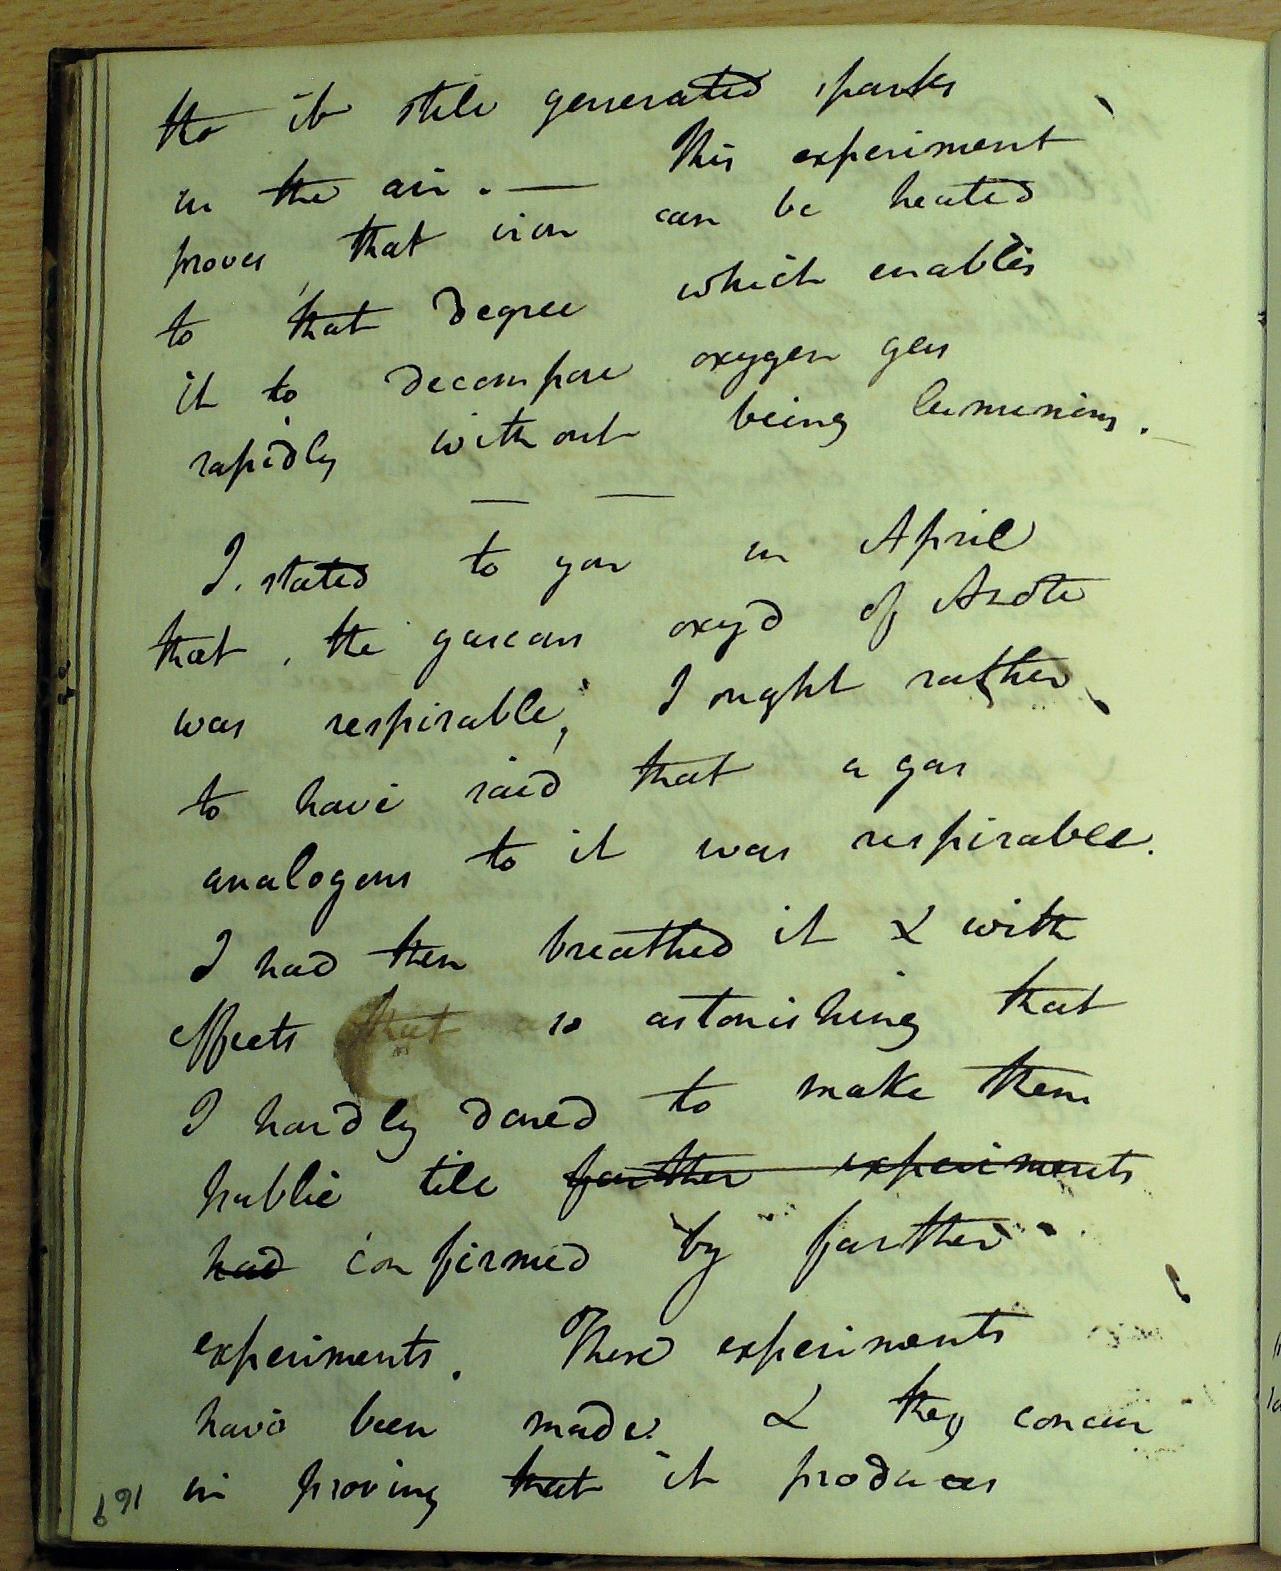 tho it still generated sparks
in the air. — This experiment
proves that iron can be heated
to that degree which enables
it to decompose oxygen gas
rapidly without being luminous.
— —
I stated to you in April
that the gaseous oxyd of Azote
was respirable, I ought rather
to have said that a gas
analogous to it was respirable.
I had then breathed it & with
effects that so astonishing that
I hardly dared to make them
public till farther experiments
had confirmed by farther
experiments. These experiments
have been made & they concur
in proving that it produces
169